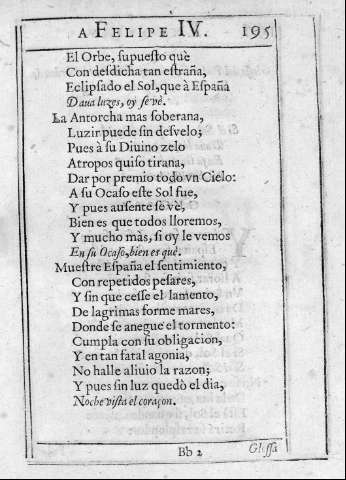 A FELIPE IV. 195
El Orbe, ſupueſto què
Con desdicha tan eſtraña,
Eclipſado el Sol, que à Eſpaña
Daua luzes, oy ſe vè.
La Antorcha mas ſoberana,
Luzir puede ſin deſvelo;
Pues à ſu Diuino zelo
Atropos quiſo tirana,
Dar por premio todo vn Cielo:
A ſu Ocaſo eſte Sol fue,
Y pues auſente ſe vè,
Bien es que todos lloremos,
Y mucho màs, ſi oy le vemos
En ſu Ocaſo, bien es què.
Mueſtre Eſpaña el ſentimiento,
Con repetidos peſares,
Y ſin que ceſſe el lamento,
De lagrimas forme mares,
Donde ſe anegue el tormento:
Cumpla con ſu obligacion,
Y en tan fatal agonia,
No halle aliuio la razon;
Y pues ſin luz quedò el dia,
Noche viſta el coraçon.
Bb 2 Gloſſa